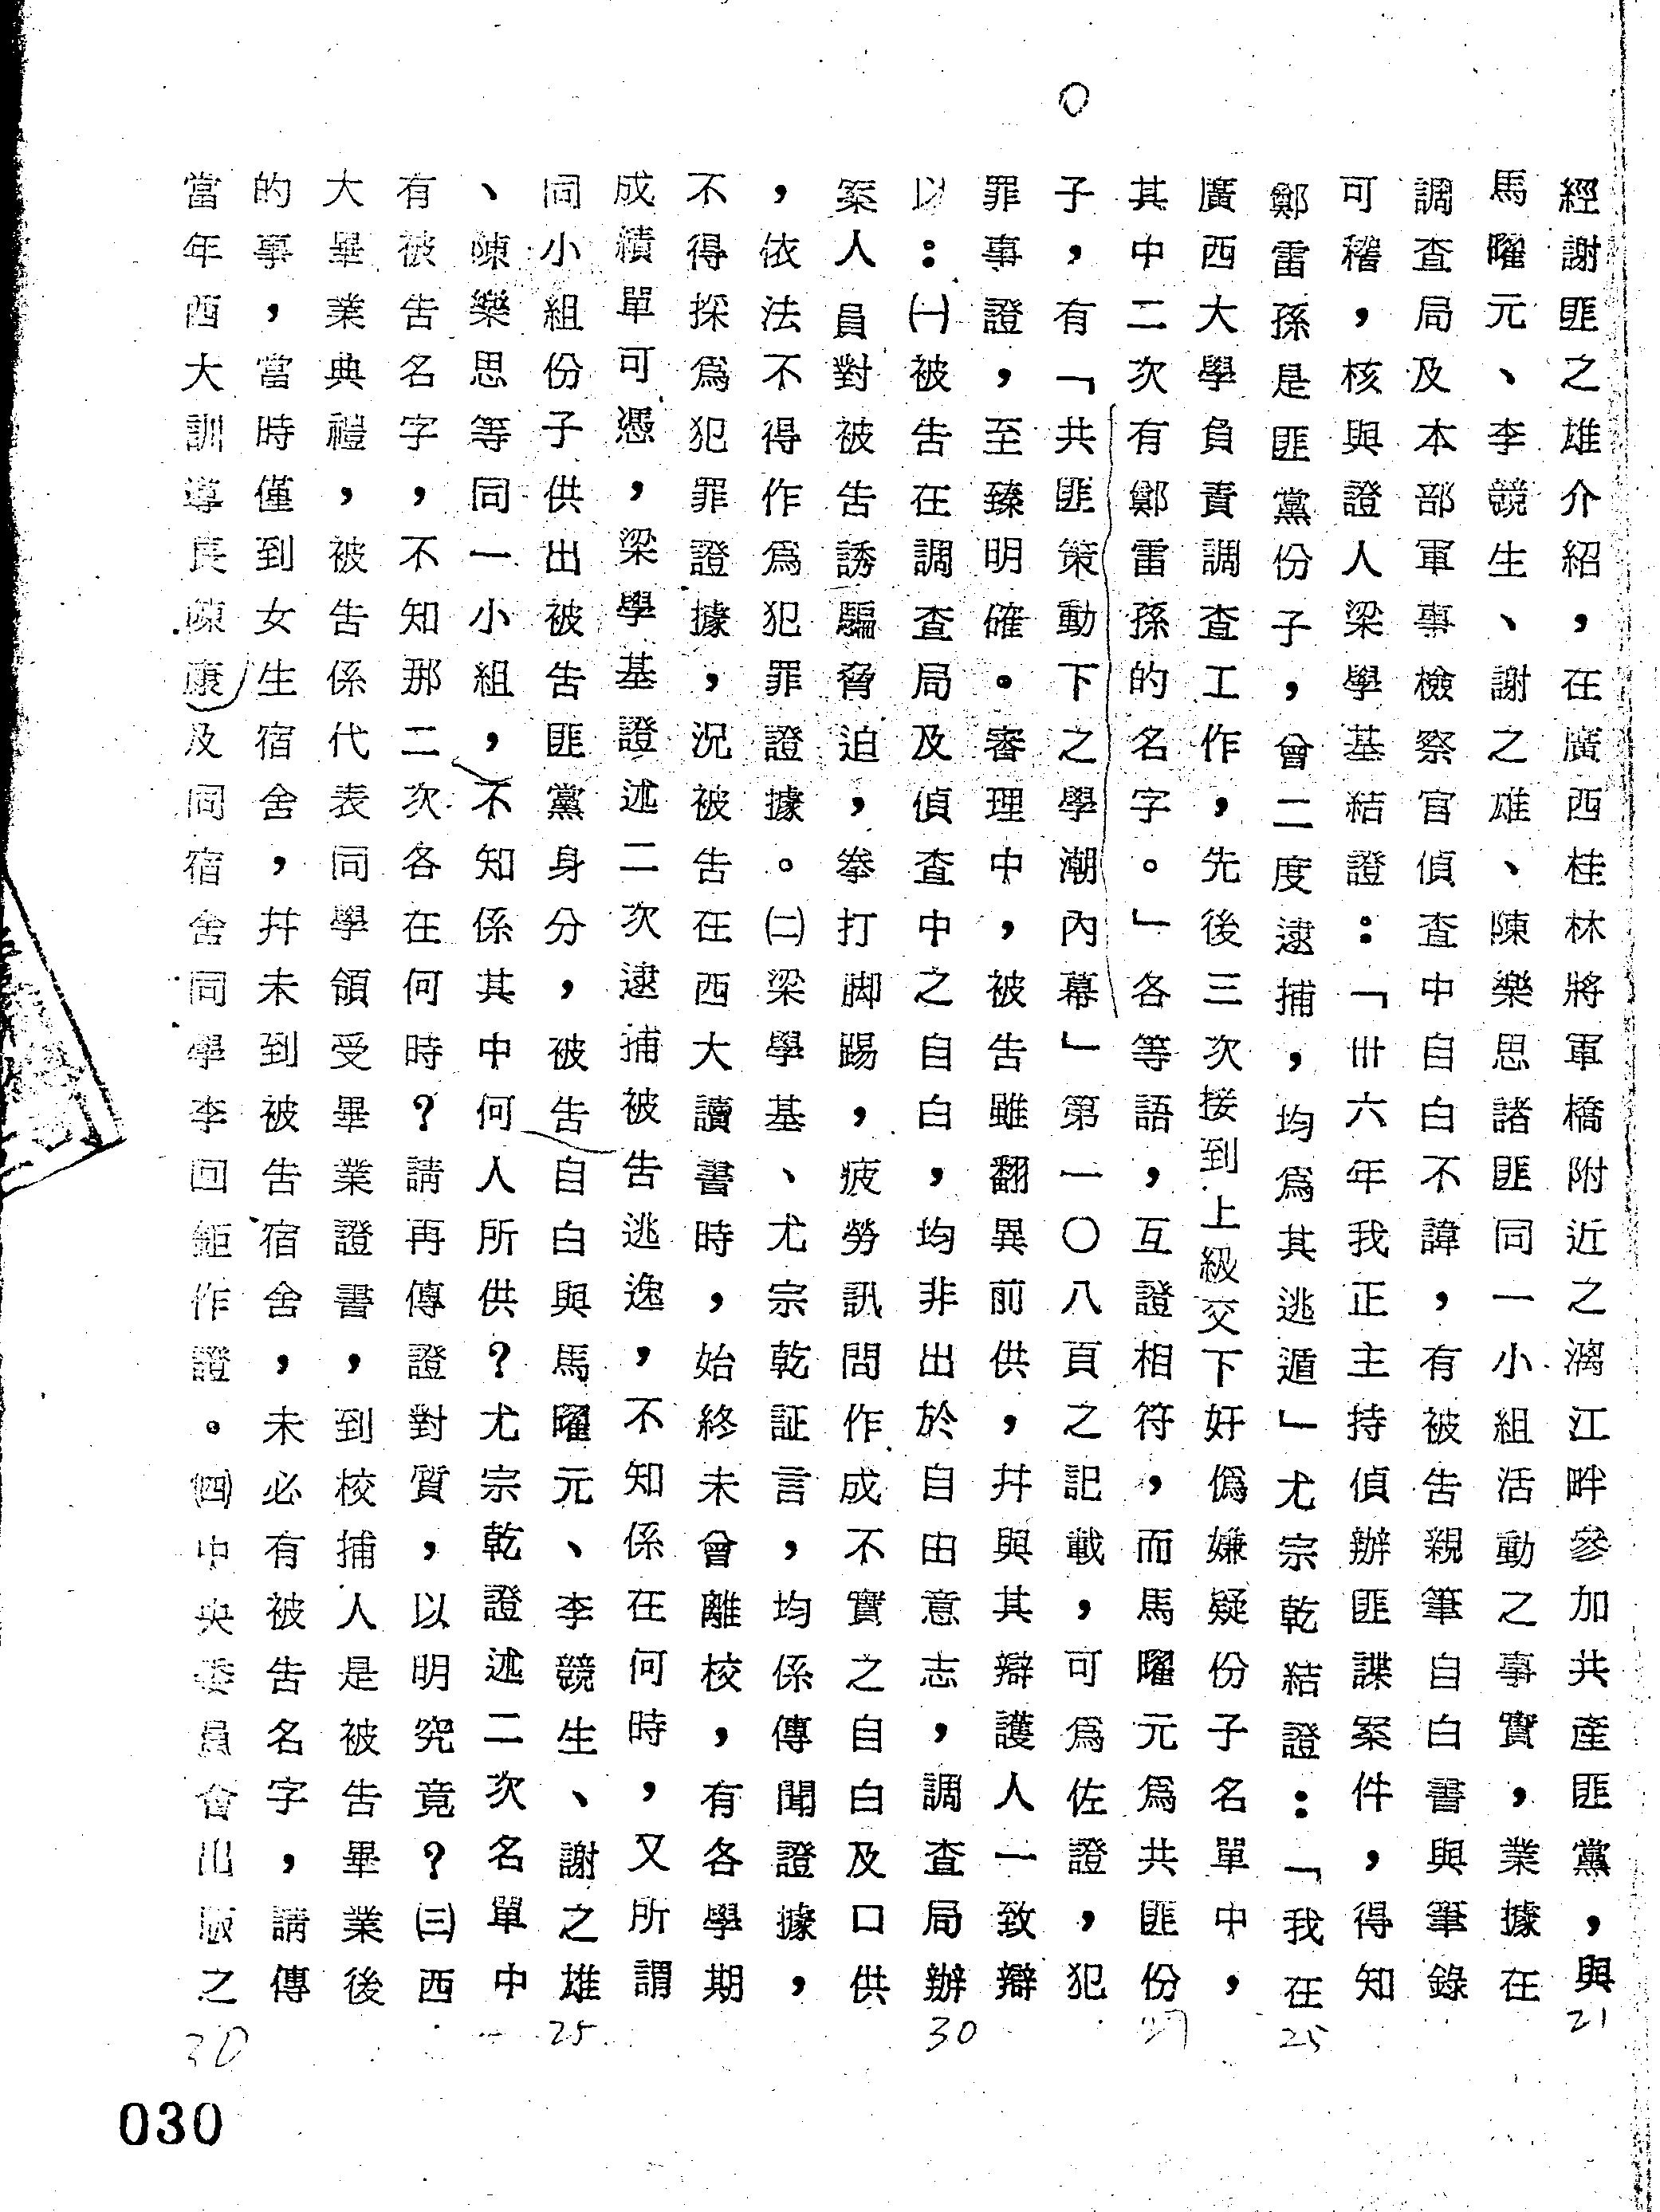 經謝匪之雄介紹，在廣西桂林將軍橋附近之漓江畔參加共產匪黨，與
馬曜元、李競生、謝之雄、陳樂思諸匪同一小組活動之事實，業據在
調查局及本部軍事檢察官偵查中自白不諱，有被告親筆自白書與筆錄
可稽，核與證人梁學基結證：「卅六年我正主持偵辦匪諜案件，得知
鄭雷孫是匪黨份子，曾二度逮捕，均為其逃遁」尤宗乾結證：「我在
廣西大學負責調查工作，先後三次接到上級交下奸偽嫌疑份子名單中，
其中二次有鄭雷孫的名字。」各等語，互證相符，而馬曜元為共匪份
子，有「共匪策動下之學潮內幕」第一〇八頁之記載，可為佐證，犯
罪事證，至臻明確。審理中，被告雖翻異前供，并與其辯護人一致辯
以：㈠被告在調查局及偵查中之自白，均非出於自由意志，調查局辦
案人員對被告誘騙脅迫，拳打脚踢，疲勞訊問作成不實之自白及口供
，依法不得作為犯罪證據。㈡梁學基、尤宗乾証言，均係傳聞證據，
不得採為犯罪證據，況被告在西大讀書時，始終未曾離校，有各學期
成績單可憑，梁學基證述二次逮捕被告逃逸，不知係在何時，又所謂
同小組份子供出被告匪黨身分，被告自白與馬曜元、李競生、謝之雄
、陳樂思等同一小組，不知係其中何人所供？尤宗乾證述二次名單中
有被告名字，不知那二次各在何時？請再傳證對質，以明究竟？㈢西
大畢業典禮，被告係代表同學領受畢業證書，到校捕人是被告畢業後
的事，當時僅到女生宿舍，并未到被告宿舍，未必有被告名字，請傳
當年西大訓導長陳康及同宿舍同學李回鉅作證。㈣中央委員會出版之
21
25
27
30
25
30
030